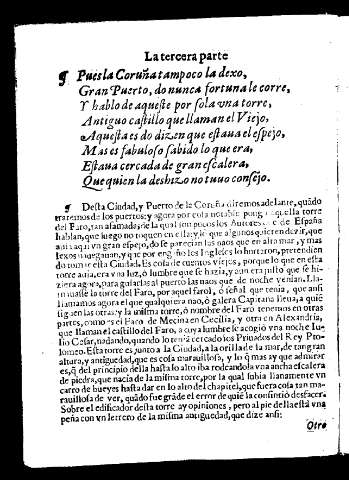 La tercera parte
¶ Pues la Coruña tampoco la dexo,
Gran Puerto, do nunca fortuna le corre,
Y hablo de aqueste por sola vna torre,
Antiguo castillo que llaman el Viejo,
Aquesta es do dizen que estaua el espejo,
Mas es fabuloso sabido lo que era,
Estaua cercada de gran escalera,
Que quien la deshizo no tuuo consejo.
¶ Desta Ciudad, y Puerto de la Coruña diremos adelante, quãdo
traremos de los puertos: y agora por cosa notable pongo aquella torre
del Faro, tan afamada, de la qual son pocos los Autores de España
hablan, que luego no toquen en ella; y lo que algunos quieren dezir, que
aui aqui vn gran espejo, do se parecian las naos que en alto mar, y mas
lexos nauegauan, y que por engaño los Ingleses lo hurtaron, pretendien
do tomar esta Ciudad: Es cosa de cuentos viejos, porque lo que en esta
torre auia, era vna luz, ò lumbre que se hazia, y aun era justo que se hi-
ziera agora, para guiar las al puerto las naos que de noche venian. Lla-
mauase la torre del Faro, por aquel farol, ò señal que tenia, que ansi
llamamos agora el que qualquiera nao, ò galera Capitana lleua, a quié
siguen las otras: y la misma torre, ò nombre del Faro tenemos en otras
partes, como es el Faro de Mecina en Cecilia, y otra en Alexandria,
que llaman el castillo del Faro, a cuya lumbre se acogiò vna noche Iu-
lio Cesar, nadando, quando lo tenia cercado los Priuados del Rey Pto-
lomeo. Esta torre es junto a la Ciudad, a la orilla de la mar, de tan gran
altura, y antiguedad, que es cosa marauillosa, y lo q̃ mas ay que admirar
es, q̃ del principio della hasta lo alto iba rodeandola vna ancha escalera
de piedra, que nacia de la misma torre, por la qual subia llanamente vn
carro de bueyes hasta dar en lo alto del chapitel, que fuera cosa tan ma-
rauillosa de ver, quãdo fue grãde el error de quié la consintiò desfacer.
Sobre el edificador desta torre ay opiniones, pero al pie della està vna
peña con vn letrero de la misma antiguedad, que dize ansi:
Otro